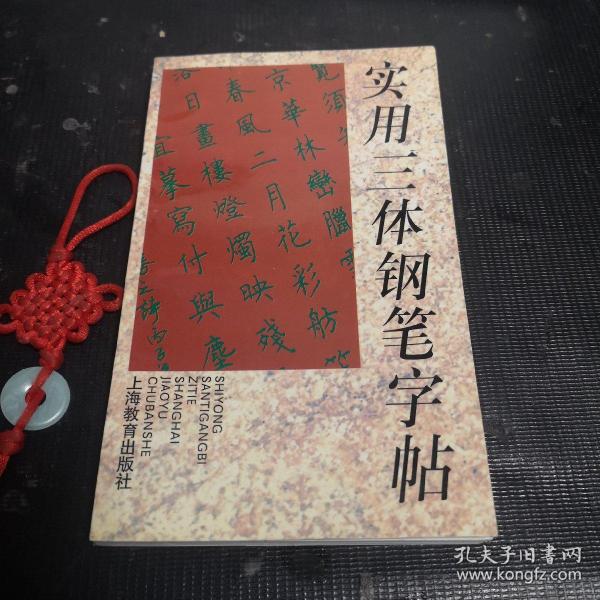 实用三体钢笔字帖
览须
京華林巒臘
春風二月花彩舫
落日畫樓燈燭映殘
宜摹寫付與塵
SHIYONG
SANTIGANGBI
ZITIE
SHANGHAI
JIAOYU
CHUBANSHE
上海教育出版社
孔夫子旧書网
www.kongfz.com